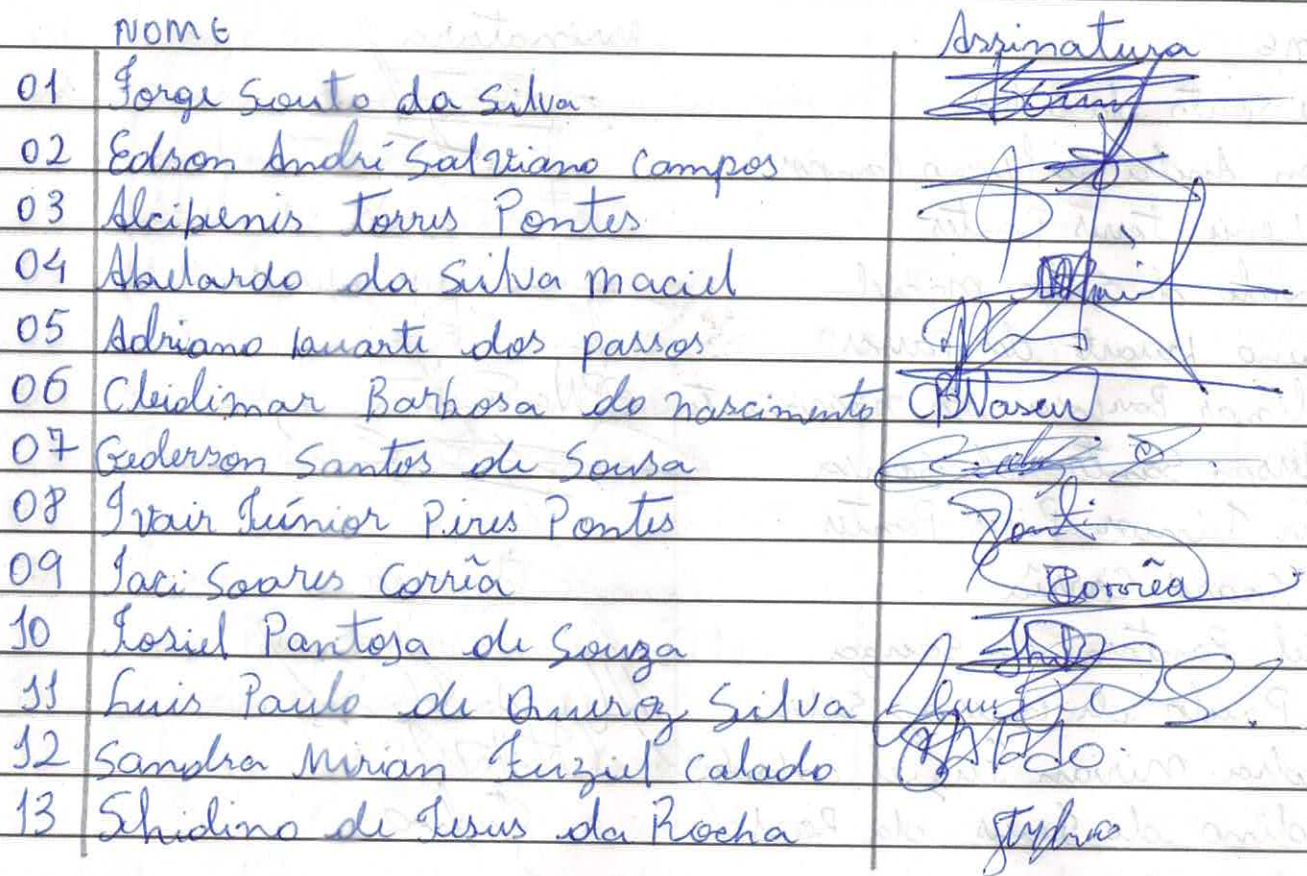 NOME Assinatura
01 Jorge Souto da Silva
02 Edson André Salviano Campos
03 Torres Pontes
04 Abelardo da Silva Maciel
05 Adriano Duarte dos passos
06 Cleidimar Barbosa do nascimento CBNascer
07 Gederson Santos de Sousa
08 Ivair Júnior Pires Pontes Ponti
09 Jaci Soares Corrêa Corrêa
10 Josiel Pantoja de Souza
11 Luis Paulo de Queiroz Silva
12 Sandra Mirian Calado
13 de Jesus da Rocha